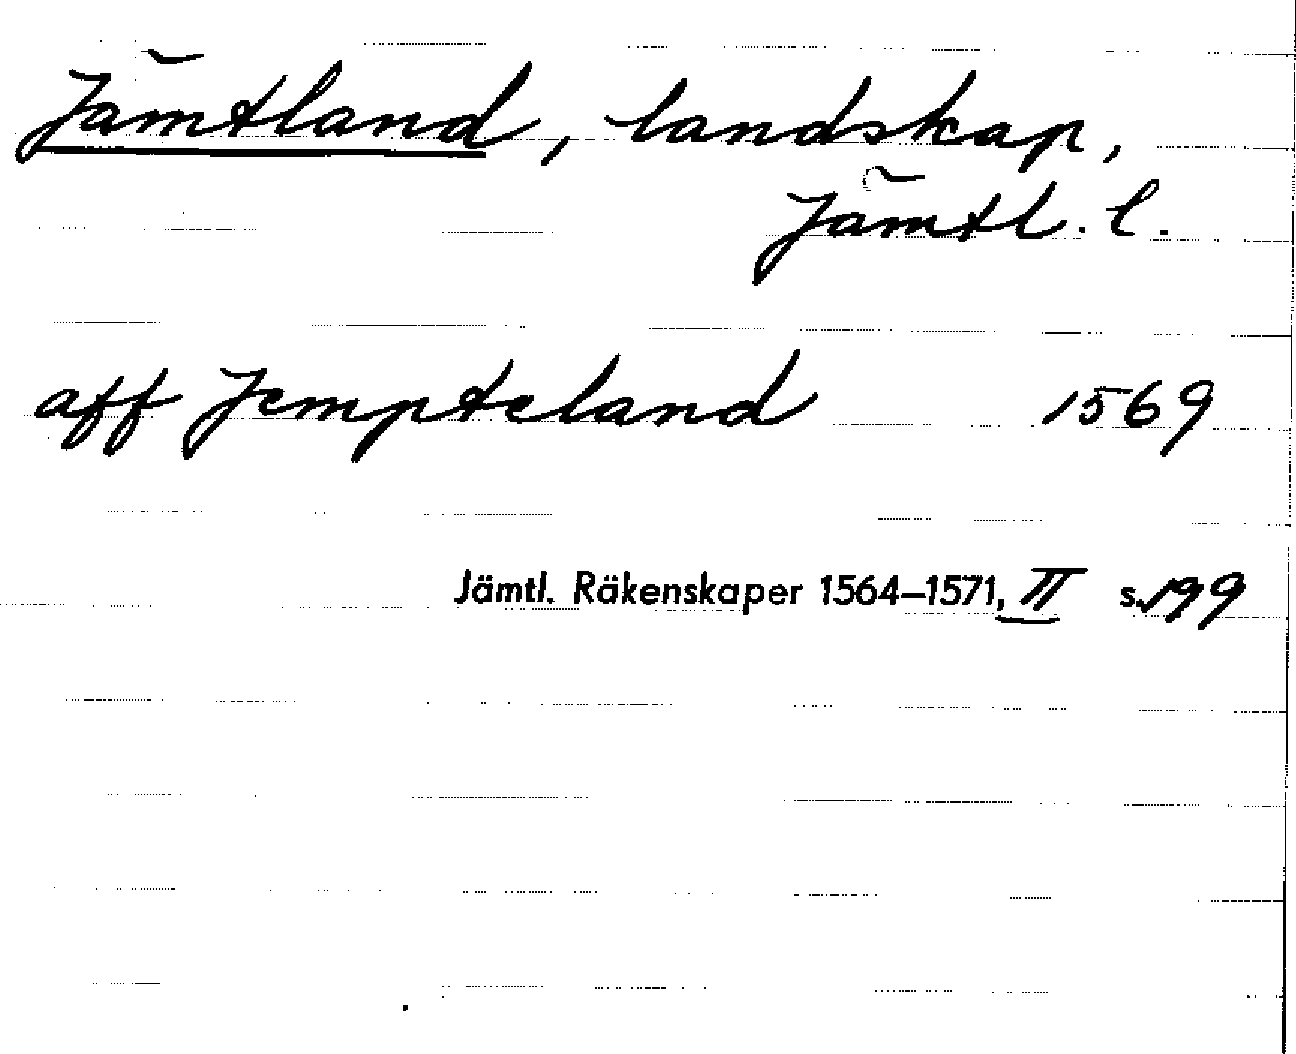 Jämtland, landskap,
Jämtl. l.
aff Jempteland 1569
Jämtl. Räkenskaper 1564–1571, II s. 199